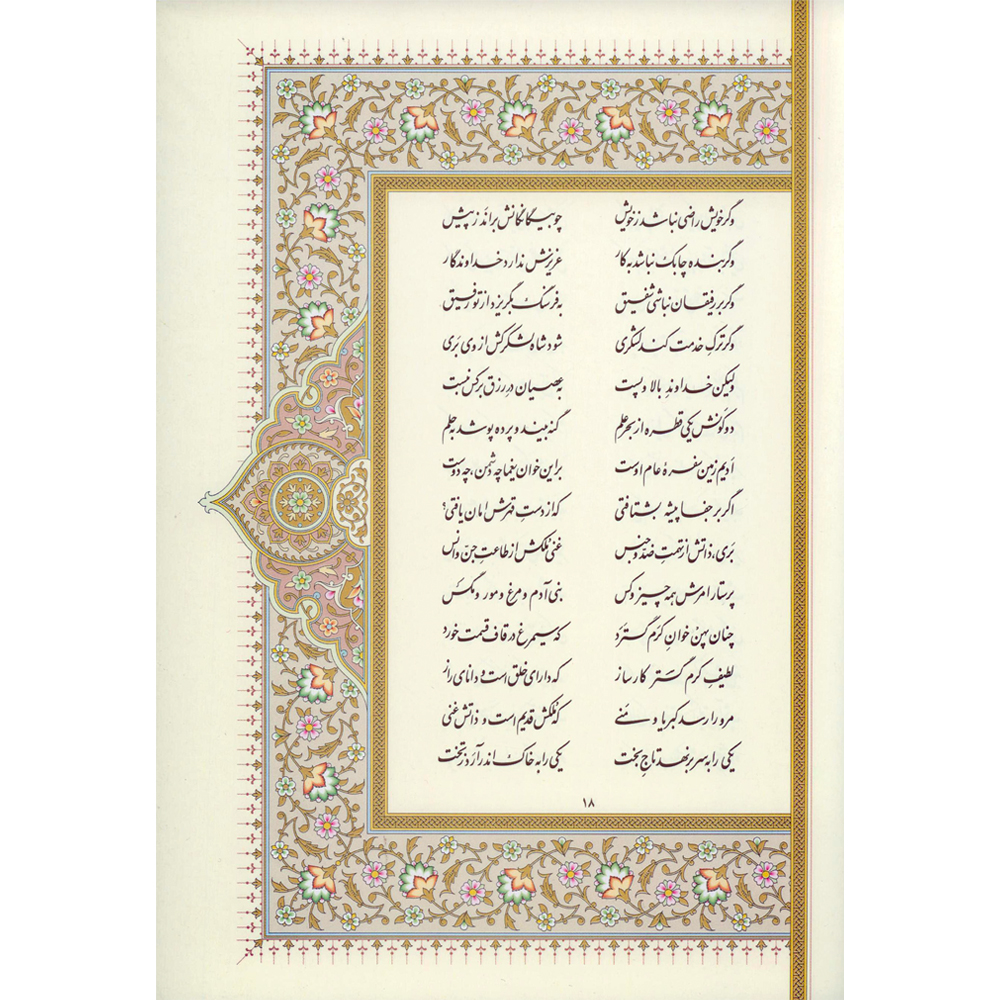 وگر خویش راضی نباشد ز خویش چو بیگانگانش براند ز پیش
وگر بنده چابک نباشد به کار عزیزش ندارد خداوندگار
وگر بر رفیقان نباشی شفیق به فرسنگ بگریزد از تو رفیق
وگر ترکِ خدمت کند لشکری شود شاه لشکرکش از وی بَری
ولیکن خداوندِ بالا و پست به عصیان درِ رزق بر کس نبست
دو کَونش یکی قطره از بحرِ علم گنه بیند و پرده پوشد به حلم
اَدیم زمین سفرهٔ عام اوست بر این خوان یغما چه دشمن، چه دوست
اگر بر جفا پیشه بشتافتی که از دستِ قهرش امان یافتی؟
بَری، ذاتش از تهمتِ ضدّ و جنس غنی مُلکش از طاعتِ جنّ و انس
پرستار امرش همه چیز و کس بنی آدم و مرغ و مور و مگس
چنان پهن خوانِ کَرَم گسترد که سیمرغ در قاف قسمت خورد
لطیفِ کرم گستر کارساز که دارای خلق است و دانای راز
مر و را رسد کبریا و منی که مُلکش قدیم است و ذاتش غنی
یکی را به سر بر نهد تاجِ بخت یکی را به خاک اندر آرد ز تخت
۱۸